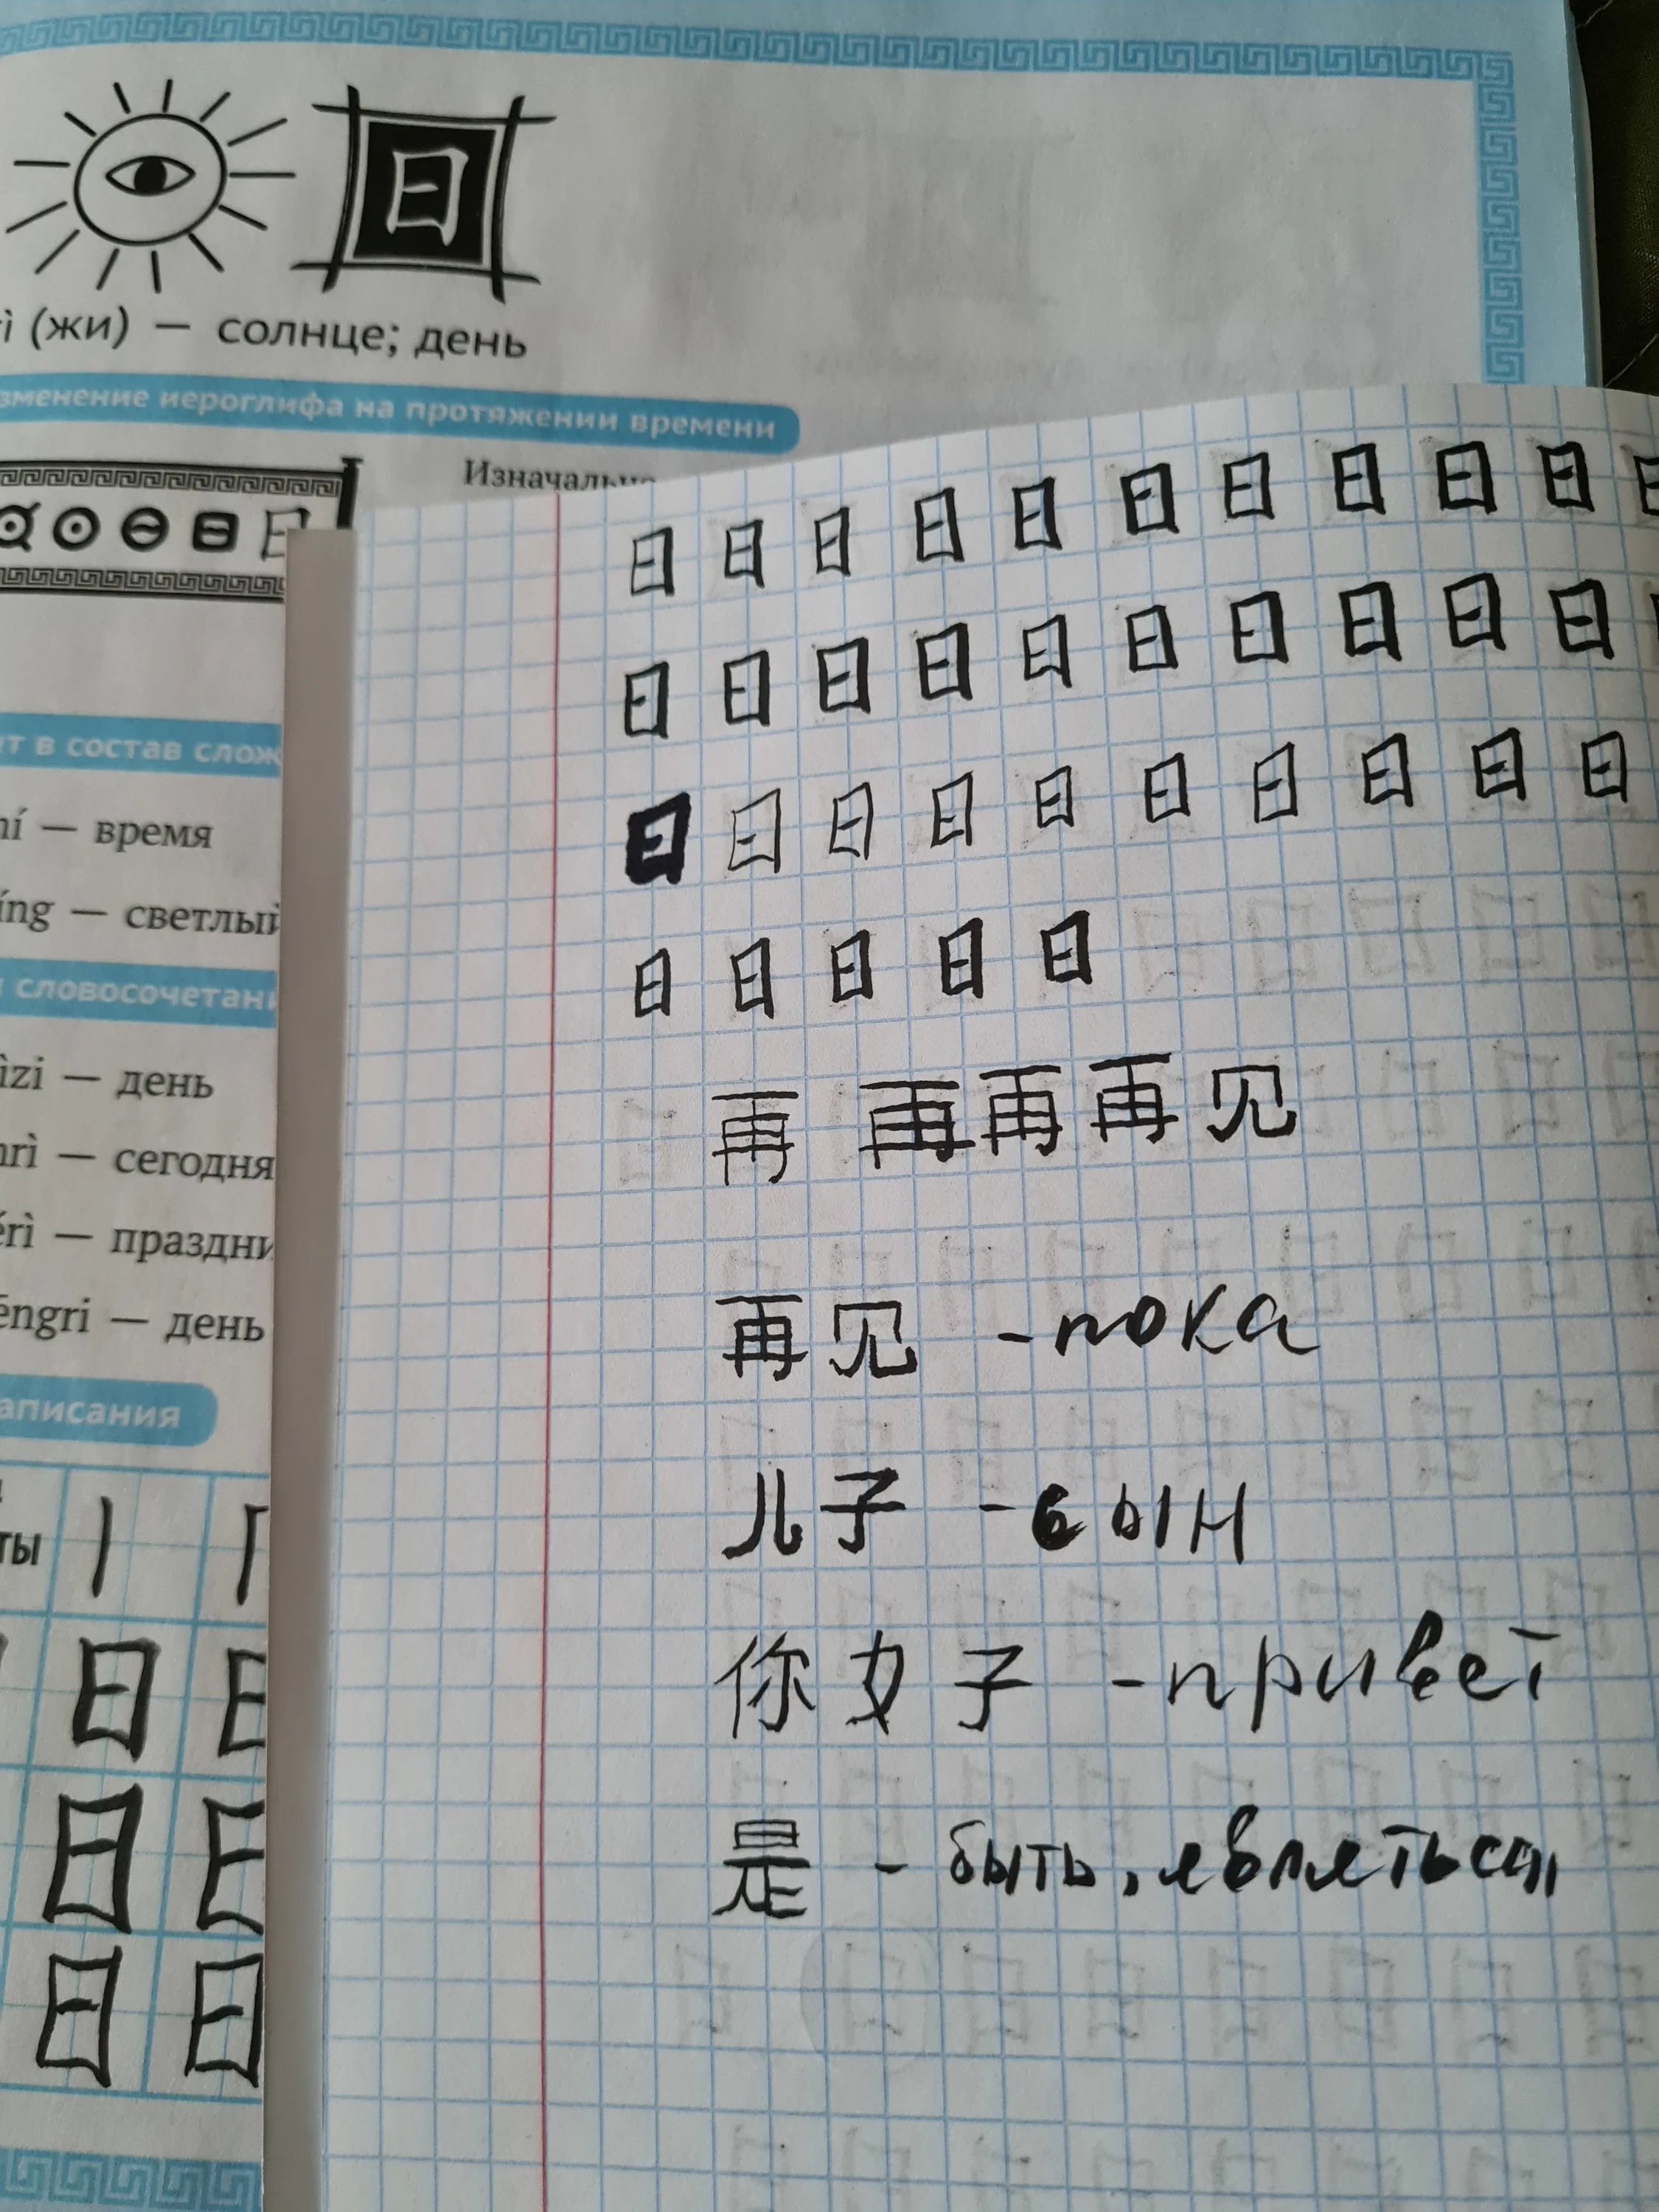 日
(жи) — солнце; день
зменение иероглифа на протяжении времени
Изначально
日
т в состав слож
— время
íng — светлый
словосочетани
ìzi — день
rì — сегодня
érì — праздни
éngri — день
аписания
ты
日
日
日 日
日 日 日 日 日 日 日 日 日 日
日 日 日 日 日 日 日 日 日 日
日 日 日 日 日 日 日 日 日 日
日 日 日 日 日
再 再 再 再 见
再见 - пока
儿子 - сын
你女子 - привет
是 - быть, являться